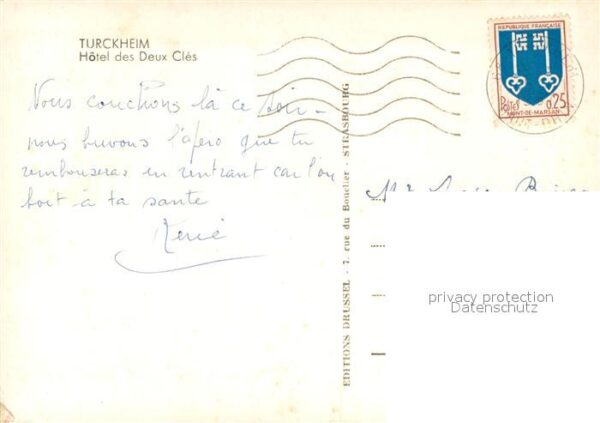 TURCKHEIM
Hôtel des Deux Clés
Nous couchons là ce soir -
nous buvons l'apéro que tu
rembourseras en rentrant car l'on
boit à ta santé
René
EDITIONS DRUSSEL - 7, rue du Bouclier - STRASBOURG
REPUBLIQUE FRANÇAISE
Postes 0,25
MONT-DE-MARSAN
privacy protection
Datenschutz